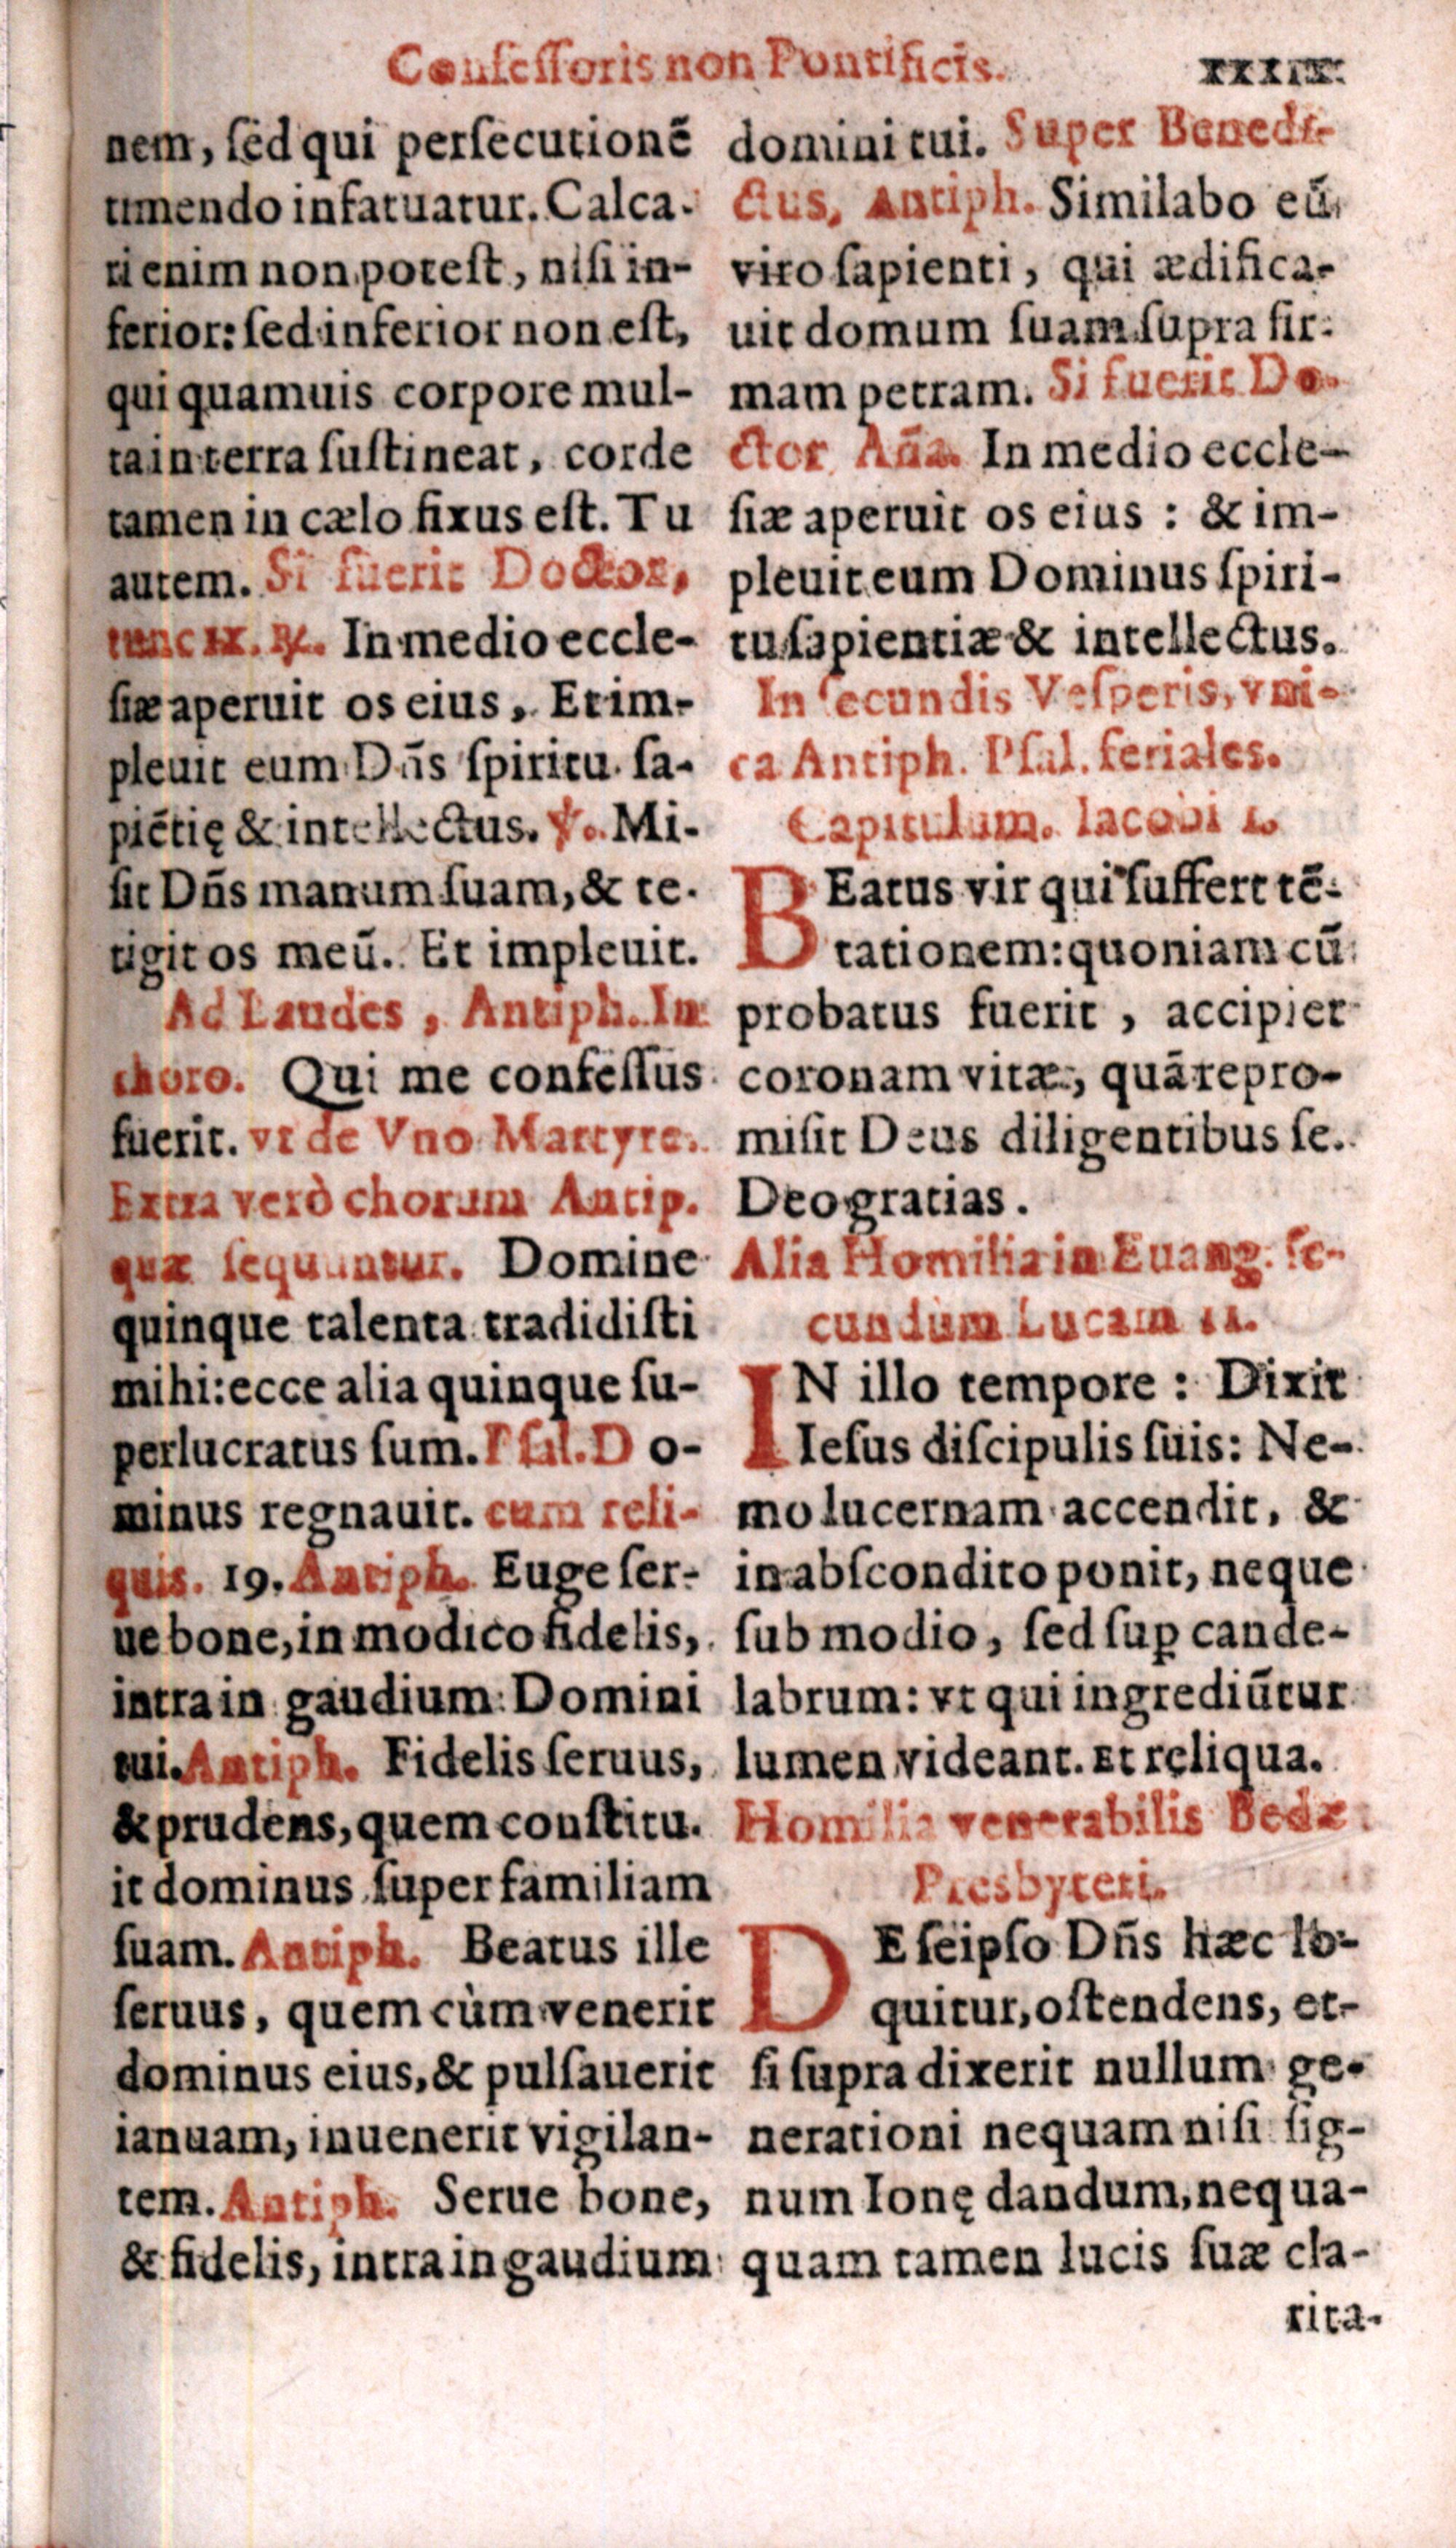 Confessoris non Pontificis. xxxix.
nem, sed qui persecutionẽ
timendo infatuatur. Calca-
ri enim non potest, nisi in-
ferior: sed inferior non est,
qui quamuis corpore mul-
ta in terra sustineat, corde
tamen in cælo fixus est. Tu
autem. Si fuerit Doctor,
tunc ix. ℟. In medio eccle-
siæ aperuit os eius, Et im-
pleuit eum Dñs spiritu sa-
piẽtię & intellectus. ℣. Mi-
sit Dñs manum suam, & te-
tigit os meũ. Et impleuit.
Ad Laudes, Antiph. In
choro. Qui me confessus
fuerit. vt de Vno Martyre.
Extra verò chorum Antip.
quæ sequuntur. Domine
quinque talenta tradidisti
mihi: ecce alia quinque su-
perlucratus sum. Psal. Do-
minus regnauit. cum reli-
quis. 19. Antiph. Euge ser-
ue bone, in modico fidelis,
intra in gaudium Domini
tui. Antiph. Fidelis seruus,
& prudens, quem constitu-
it dominus super familiam
suam. Antiph. Beatus ille
seruus, quem cùm venerit
dominus eius, & pulsauerit
ianuam, inuenerit vigilan-
tem. Antiph. Serue bone,
& fidelis, intra in gaudium
domini tui. Super Benedi-
ctus, Antiph. Similabo eũ
viro sapienti, qui ædifica-
uit domum suam supra fir-
mam petram. Si fuerit Do-
ctor Aña. In medio eccle-
siæ aperuit os eius: & im-
pleuit eum Dominus spiri-
tu sapientiæ & intellectus.
In secundis Vesperis, vni-
ca Antiph. Psal. feriales.
Capitulum. Iacobi 1.
BEatus vir qui suffert tẽ-
tationem: quoniam cũ
probatus fuerit, accipiet
coronam vitæ, quã repro-
misit Deus diligentibus se.
Deo gratias.
Alia Homilia in Euang. se-
cundùm Lucam 11.
IN illo tempore: Dixit
Iesus discipulis suis: Ne-
mo lucernam accendit, &
in abscondito ponit, neque
sub modio, sed suꝑ cande-
labrum: vt qui ingrediũtur
lumen videant. Et reliqua.
Homilia venerabilis Bedæ
Presbyteri.
DE seipso Dñs hæc lo-
quitur, ostendens, et-
si supra dixerit nullum ge-
nerationi nequam nisi sig-
num Ionę dandum, nequa-
quam tamen lucis suæ cla-
rita-